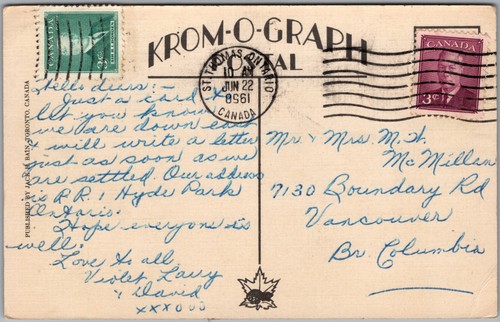 KROM-O-GRAPH
POSTAL
CANADA
2c
ST. THOMAS, ONTARIO
10 AM
JUN 22
CANADA
CANADA
3c
Hello dears: -
Just a card to
let you know
we are down east
I will write a letter
just as soon as we
are settled. Our address
is R.R. 1 Hyde Park
Ontario.
Hope everyone is
well.
Love to all,
Violet Larry
& David
xxxooo
Mr. & Mrs. M. H.
McMillan
7130 Boundary Rd
Vancouver
Br. Columbia
PUBLISHED BY JACK H. BAIN, TORONTO, CANADA